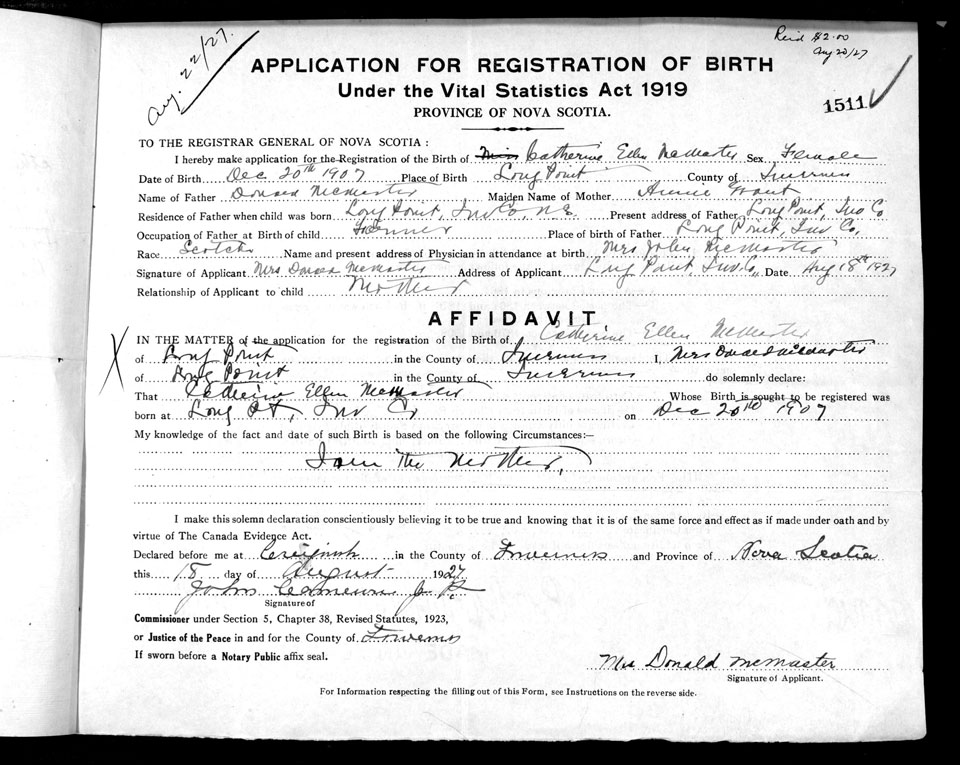 Aug. 22/27.
Rec'd $2.00
Aug 20/27
APPLICATION FOR REGISTRATION OF BIRTH
Under the Vital Statistics Act 1919
PROVINCE OF NOVA SCOTIA.
1511
TO THE REGISTRAR GENERAL OF NOVA SCOTIA :
I hereby make application for the Registration of the Birth of Miss Catherine Ellen McMaster Sex Female
Date of Birth Dec 20th 1907 Place of Birth Long Point County of Inverness
Name of Father Donald McMaster Maiden Name of Mother Annie Grant
Residence of Father when child was born Long Point, Inv Co, N.S. Present address of Father Long Point, Inv Co
Occupation of Father at Birth of child Farmer Place of birth of Father Long Point, Inv Co,
Race Scotch Name and present address of Physician in attendance at birth Mrs John McMaster
Signature of Applicant Mrs Donald McMaster Address of Applicant Long Point Inv Co. Date Aug 18th 1927
Relationship of Applicant to child Mother
AFFIDAVIT
X IN THE MATTER of the application for the registration of the Birth of Catherine Ellen McMaster
of Long Point in the County of Inverness I, Mrs Donald McMaster
of Long Point in the County of Inverness do solemnly declare:
That Catherine Ellen McMaster Whose Birth is sought to be registered was
born at Long Pt, Inv Co on Dec 20th 1907
My knowledge of the fact and date of such Birth is based on the following Circumstances:—
I am the Mother,
I make this solemn declaration conscientiously believing it to be true and knowing that it is of the same force and effect as if made under oath and by
virtue of The Canada Evidence Act.
Declared before me at Craignish in the County of Inverness and Province of Nova Scotia
this 18 day of August 1927
John Cameron J. P.
Signature of
Commissioner under Section 5, Chapter 38, Revised Statutes, 1923,
or Justice of the Peace in and for the County of Inverness
If sworn before a Notary Public affix seal.
Mrs Donald McMaster
Signature of Applicant.
For Information respecting the filling out of this Form, see Instructions on the reverse side.